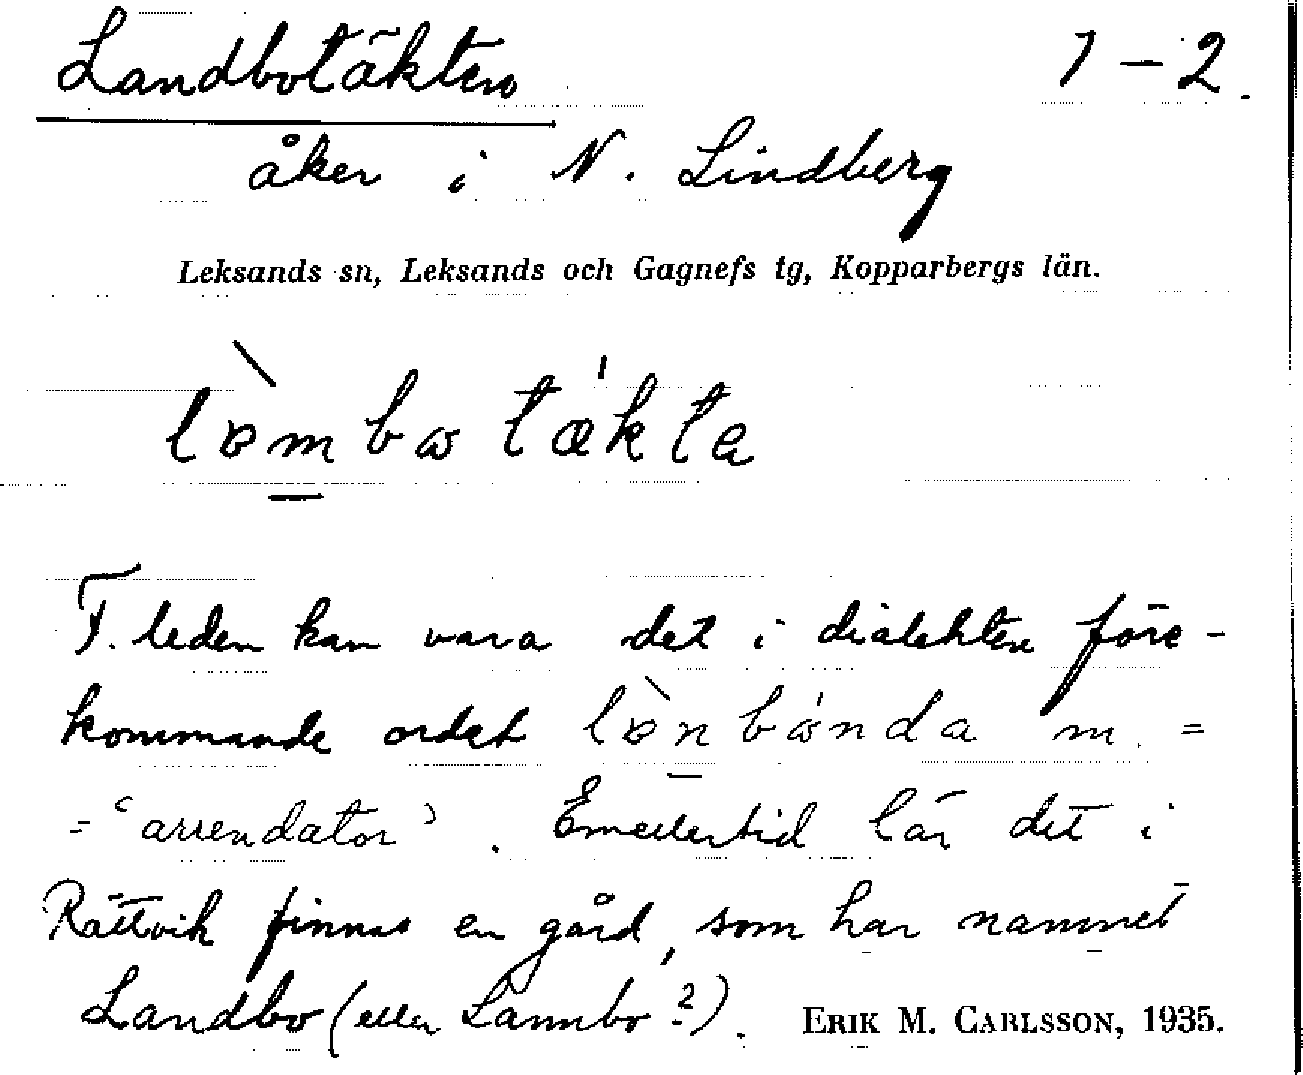 Landbotäkten 1-2.
åker i N. Lindberg
Leksands sn, Leksands och Gagnefs tg, Kopparbergs län.
lòmbωtǽkta
F. leden kan vara det i dialekten före-
kommande ordet lònbωnda m. =
= ‘arrendator’. Emellertid lär det i
Rättvik finnas en gård, som har namnet
Landbo (eller Lannbo?). ERIK M. CARLSSON, 1935.